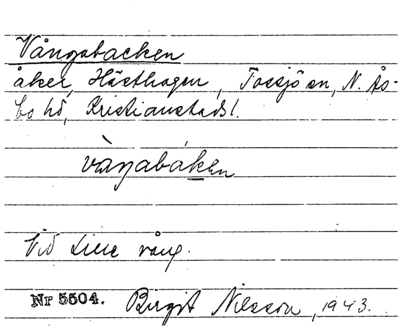 Vångabacken
åker, Hästhagen, Tossjö sn, N. Ås-
bo hd, Kristianstads l.
vàŋabáken
Vid Lille vång.
Nr 5504. Birgit Nilsson, 1943.